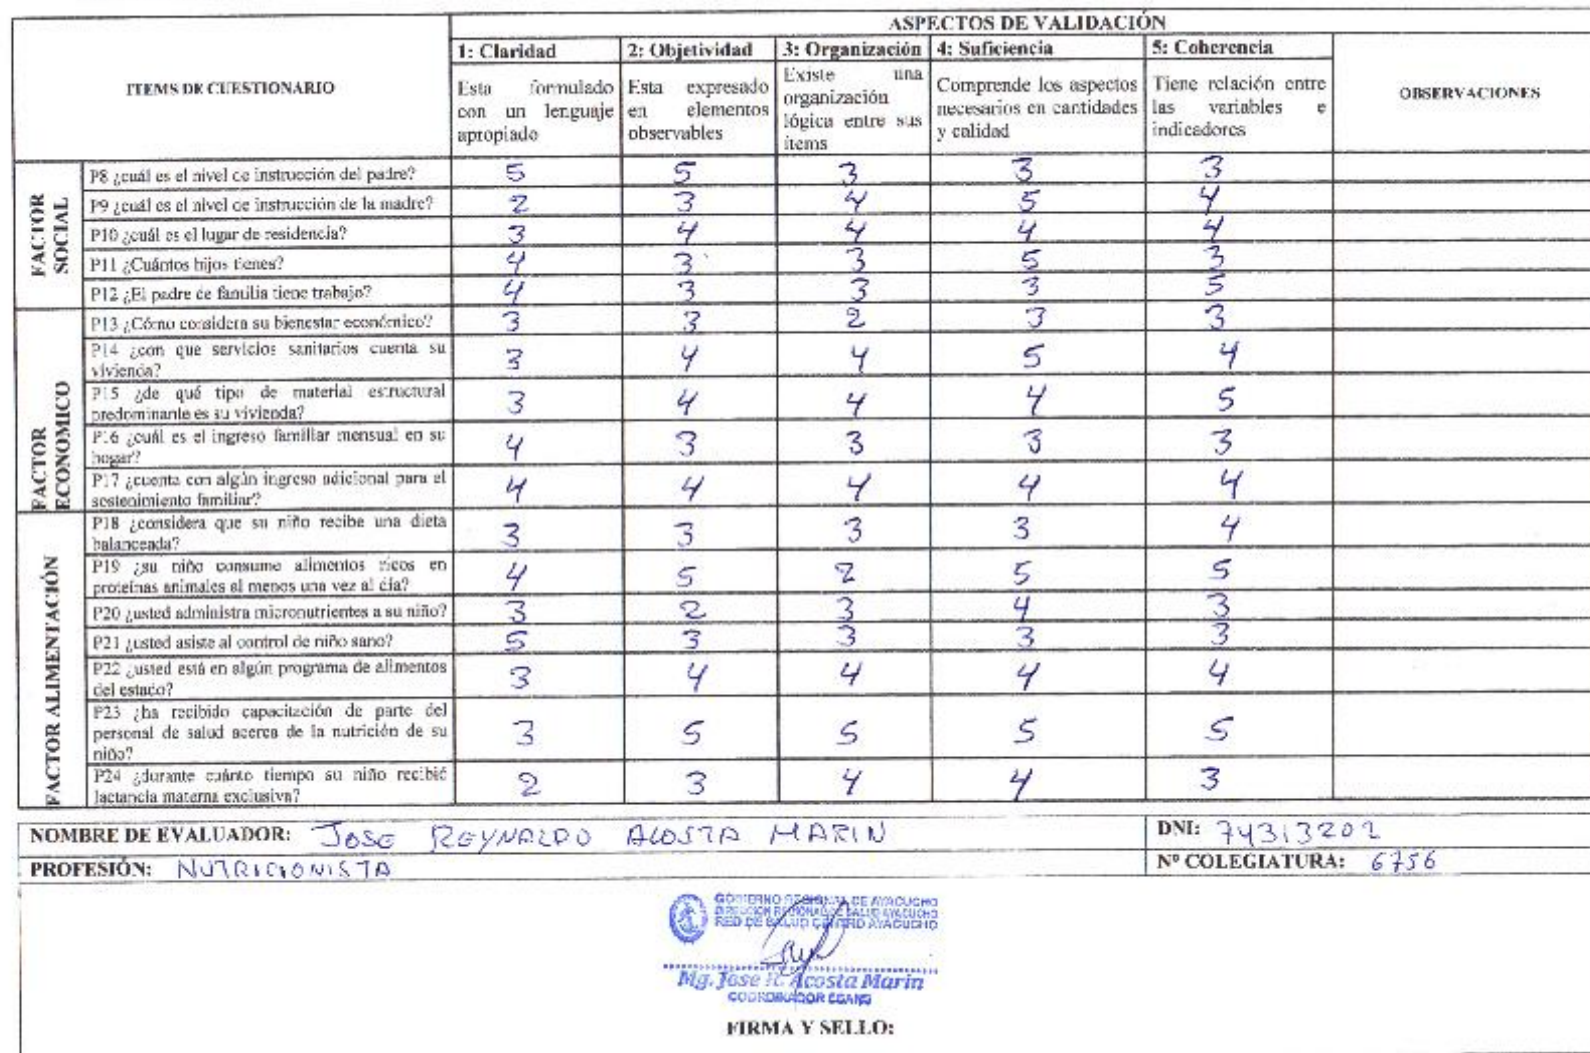 ASPECTOS DE VALIDACIÓN
ITEMS DE CUESTIONARIO
1: Claridad 2: Objetividad 3: Organización 4: Suficiencia 5: Coherencia
OBSERVACIONES
Esta formulado con un lenguaje apropiado
Esta expresado en elementos observables
Existe una organización lógica entre sus items
Comprende los aspectos necesarios en cantidades y calidad
Tiene relación entre las variables e indicadores
FACTOR SOCIAL
P8 ¿cuál es el nivel de instrucción del padre? 5 5 3 3 3
P9 ¿cuál es el nivel de instrucción de la madre? 2 3 4 5 4
P10 ¿cuál es el lugar de residencia? 3 4 4 4 4
P11 ¿Cuántos hijos tienes? 4 3 3 5 3
P12 ¿El padre de familia tiene trabajo? 4 3 3 3 5
FACTOR ECONOMICO
P13 ¿Cómo considera su bienestar económico? 3 3 2 3 3
P14 ¿con que servicios sanitarios cuenta su vivienda? 3 4 4 5 4
P15 ¿de qué tipo de material estructural predominante es su vivienda? 3 4 4 4 5
P16 ¿cuál es el ingreso familiar mensual en su hogar? 4 3 3 3 3
P17 ¿cuenta con algún ingreso adicional para el sostenimiento familiar? 4 4 4 4 4
FACTOR ALIMENTACIÓN
P18 ¿considera que su niño recibe una dieta balanceada? 3 3 3 3 4
P19 ¿su niño consume alimentos ricos en proteínas animales al menos una vez al día? 4 5 2 5 5
P20 ¿usted administra micronutrientes a su niño? 3 2 3 4 3
P21 ¿usted asiste al control de niño sano? 5 3 3 3 3
P22 ¿usted está en algún programa de alimentos del estado? 3 4 4 4 4
P23 ¿ha recibido capacitación de parte del personal de salud acerca de la nutrición de su niño? 3 5 5 5 5
P24 ¿durante cuánto tiempo su niño recibió lactancia materna exclusiva? 2 3 4 4 3
NOMBRE DE EVALUADOR: JOSE REYNALDO ACOSTA MARIN DNI: 74313202
PROFESIÓN: NUTRICIONISTA Nº COLEGIATURA: 6756
GOBIERNO REGIONAL DE AYACUCHO
DIRECCION REGIONAL DE SALUD AYACUCHO
RED DE SALUD CENTRO AYACUCHO
Mg. Jose R. Acosta Marin
COORDINADOR
FIRMA Y SELLO: